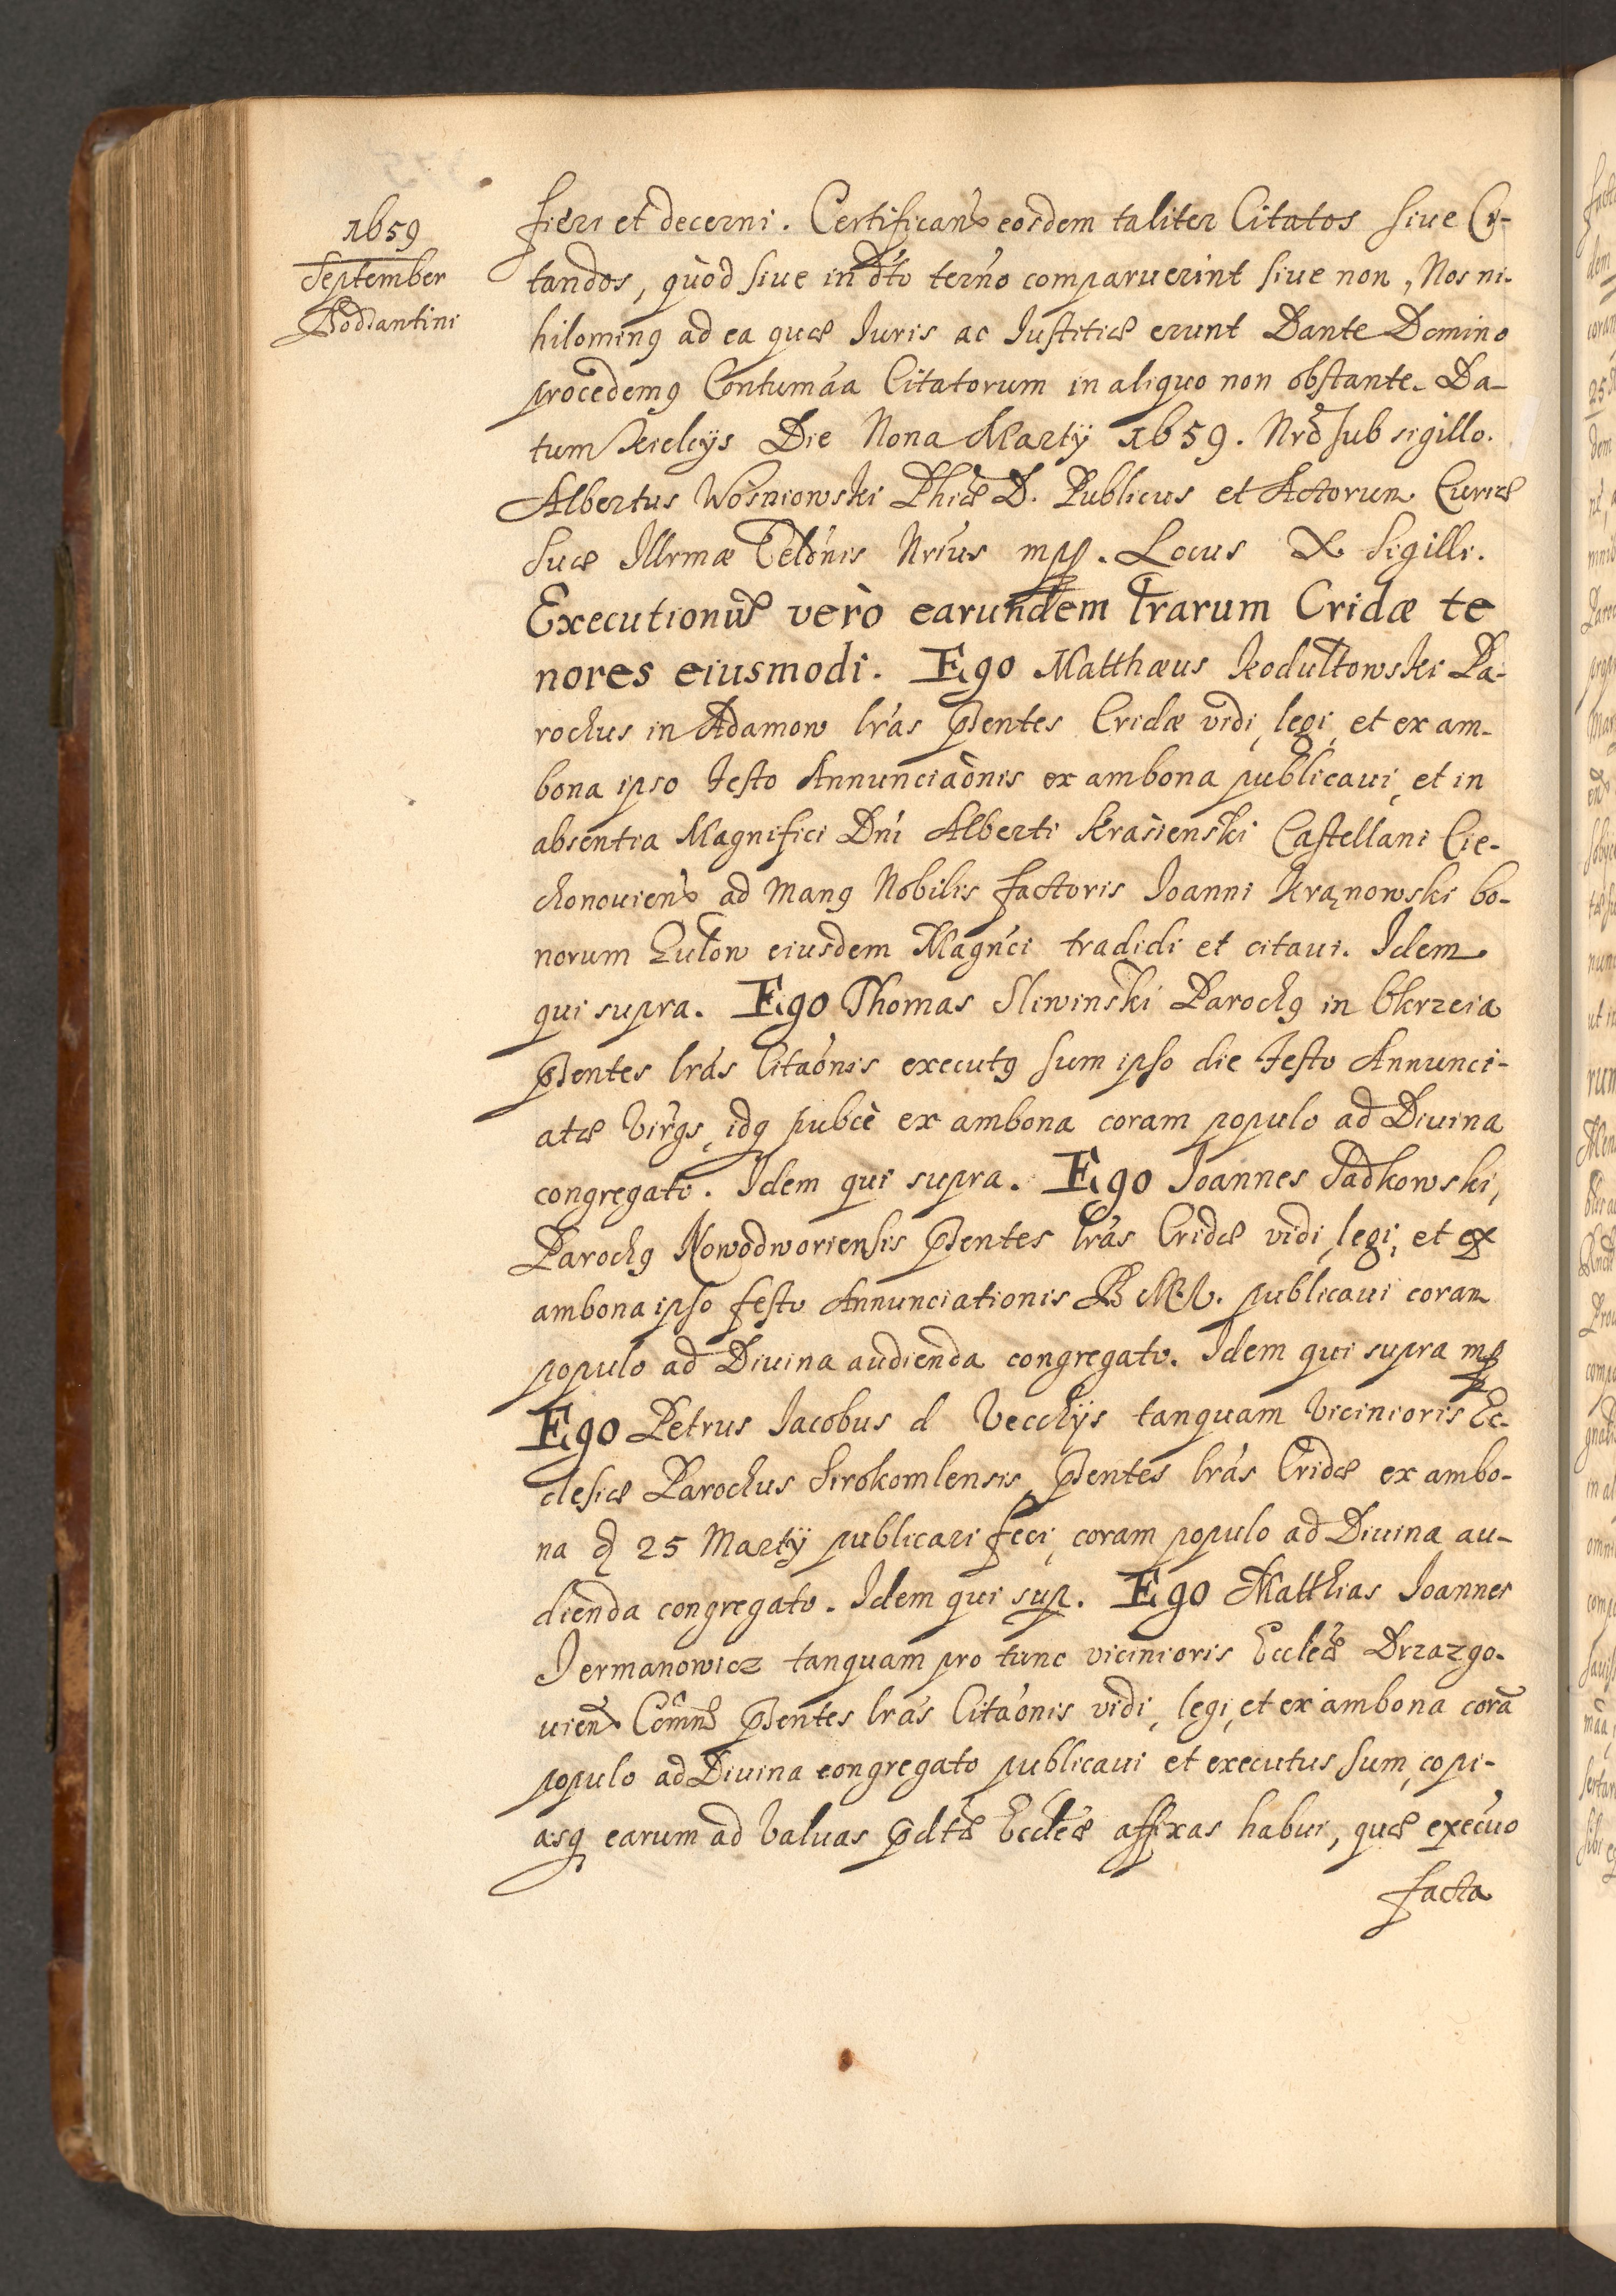 1659
September
Bodzantini
fieri et decerni. Certifican̄ eosdem taliter Citatos siue Ci-
tandos, quòd siue in dt̃o terño comparuerint siue non, Nos ni-
hilominꝰ ad ea quæ Iuris ac Iustitiæ erunt Dante Domino
procedemꝰ Contumãa Citatorum in aliquo non obstante. Da-
tum Kielcÿs Die Nona Martÿ 1659. Nr̃o sub sigillo.
Albertus Wośniowski Phiæ D. Publicus et Actorum Curiæ
suæ Illr̃mæ Celõnis Nr̃ius mpp. Locus X Sigilli.
Executionũ verò earundem lr̃arum Cridæ te
nores eiusmodi. Ego Matthæus Kodultowski Pa-
rochus in Adamow lr̃as p̃sentes Cridæ vidi, legi, et ex am-
bona ipso festo Annunciaõnis ex ambona publicaui, et in
absentia Magnifici Dñi Alberti Krasieński Castellani Cie-
chonouien̄ ad manꝰ Nobilis factoris Ioanni Krąnowski bo-
norum Gułow eiusdem Magñci tradidi et citaui. Idem
qui supra. Ego Thomas Sliwiński Parochꝰ in Okrzeia
p̃sentes lr̃as Citaõnis executꝰ sum ipso die festo Annunci-
atæ Virg̃s, idqꝫ pub̃cè ex ambona coram populo ad Diuina
congregato. Idem qui supra. Ego Ioannes Sadkowski,
Parochꝰ Nowodworiensis p̃sentes lr̃as Cridæ vidi, legi, et ex
ambona ipso festo Annunciationis B M V. publicaui coram
populo ad Diuina audienda congregato. Idem qui supra mpp
Ego Petrus Iacobus d Vecchÿs tanquam Vicinioris Ec-
clesiæ Parochus Sirokomlensis p̃sentes lr̃as Cridæ ex ambo-
na d 25 Martÿ publicari feci, coram populo ad Diuina au-
dienda congregato. Idem qui sup. Ego Matthias Ioannes
Jermanowicz tanquam pro tunc vicinioris Eccleæ Drzazgo-
uien̄ Com̃n̄ p̃sentes lr̃as Citaõnis vidi, legi, et ex ambona corã
populo ad Diuina congregato publicaui et executus sum, copi-
asqꝫ earum ad Valuas p̃dt̃æ Eccleæ affixas habui, quæ execũo
facta